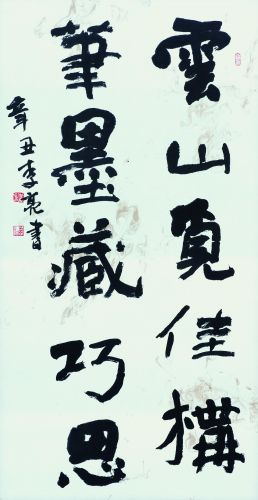 雲山覓佳構
筆墨藏巧思
辛丑李亮書